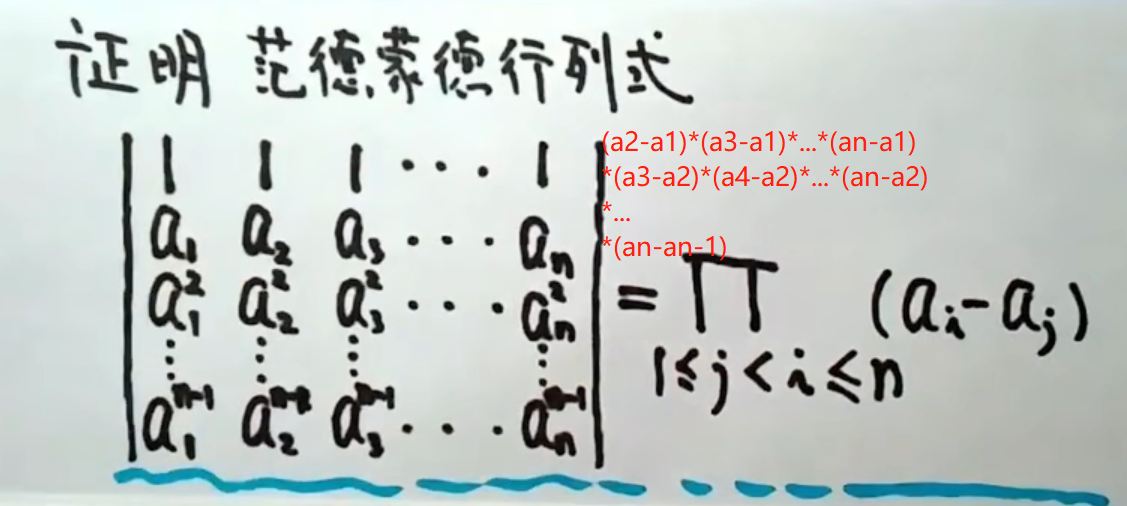 证明 范德蒙德行列式
1 1 1 ··· 1
a₁ a₂ a₃ ··· aₙ
a₁² a₂² a₃² ··· aₙ²
⋮ ⋮ ⋮ ⋮
a₁ⁿ⁻¹ a₂ⁿ⁻¹ a₃ⁿ⁻¹ ··· aₙⁿ⁻¹
= ∏ (aᵢ-aⱼ)
1≤j<i≤n
(a2-a1)*(a3-a1)*...*(an-a1)
*(a3-a2)*(a4-a2)*...*(an-a2)
*...
*(an-an-1)